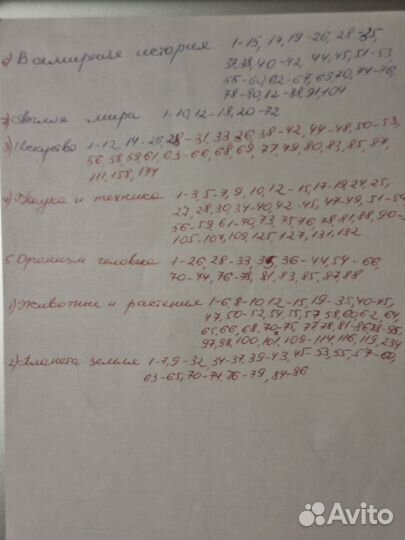 6) Всемирная история 1-15, 17, 19-26, 28-35,
37,38,40-42, 44,45,51-53,
55-60,62-67,69,70,74-76,
78-80,12-88,91,104
7) Атлас мира 1-10,12-18,20-72
3) Искусство 1-12, 14-26,28-31,33,36,38-42,44-48,50-53,
56,58,59,61,63-66,68,69,77,79,80,83,85,87,
111,158,174
4) Наука и техника 1-3,5-7,9,10,12-15,17-19,24,25,
27,28,30,34-40,42-45,47-49,51-54
56-59,61-70,73,75,76,78,81,88,90-
105-107,109,125,127,131,132
5. Организм человека 1-26,28-33,35,36-44,54-66,
70-74,76-78,81,83,85,87,88
1) Животные и растения 1-6,8-10,12-15,19-35,40-45
47,50-52,54,55,57,58,60,62,64,
65,66,68,70-75,77,78,81-86,88-95,
97,98,100,101,109-114,116,119,234
2) Планета земля 1-7,9-32,34-37,39-43,45-53,55,57-60,
63-65,70-74,76-79,84-86
Avito